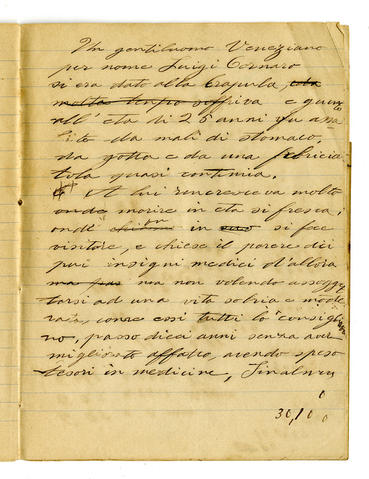 Un gentiluomo Veneziano
per nome Luigi Cornaro
si era dato alla Crapula,
molto tempo soffriva e
all' età di 25 anni fu assa
lito da mali di stomaco,
da gotta e da una febricia
tola quasi continua.
A lui rincresceva molto
onde morire in eta si fresca;
onde in se face
visitare, e chiese il parere dei
piu insigni medici d'allora
ma non volendo assogget
tarsi ad una vita sobria e mode
rata, come essi tutti lo consiglia
no, passo dieci anni senza aver
migliorato affatto, avendo speso
tesori in medicine, Finalmen
30,10